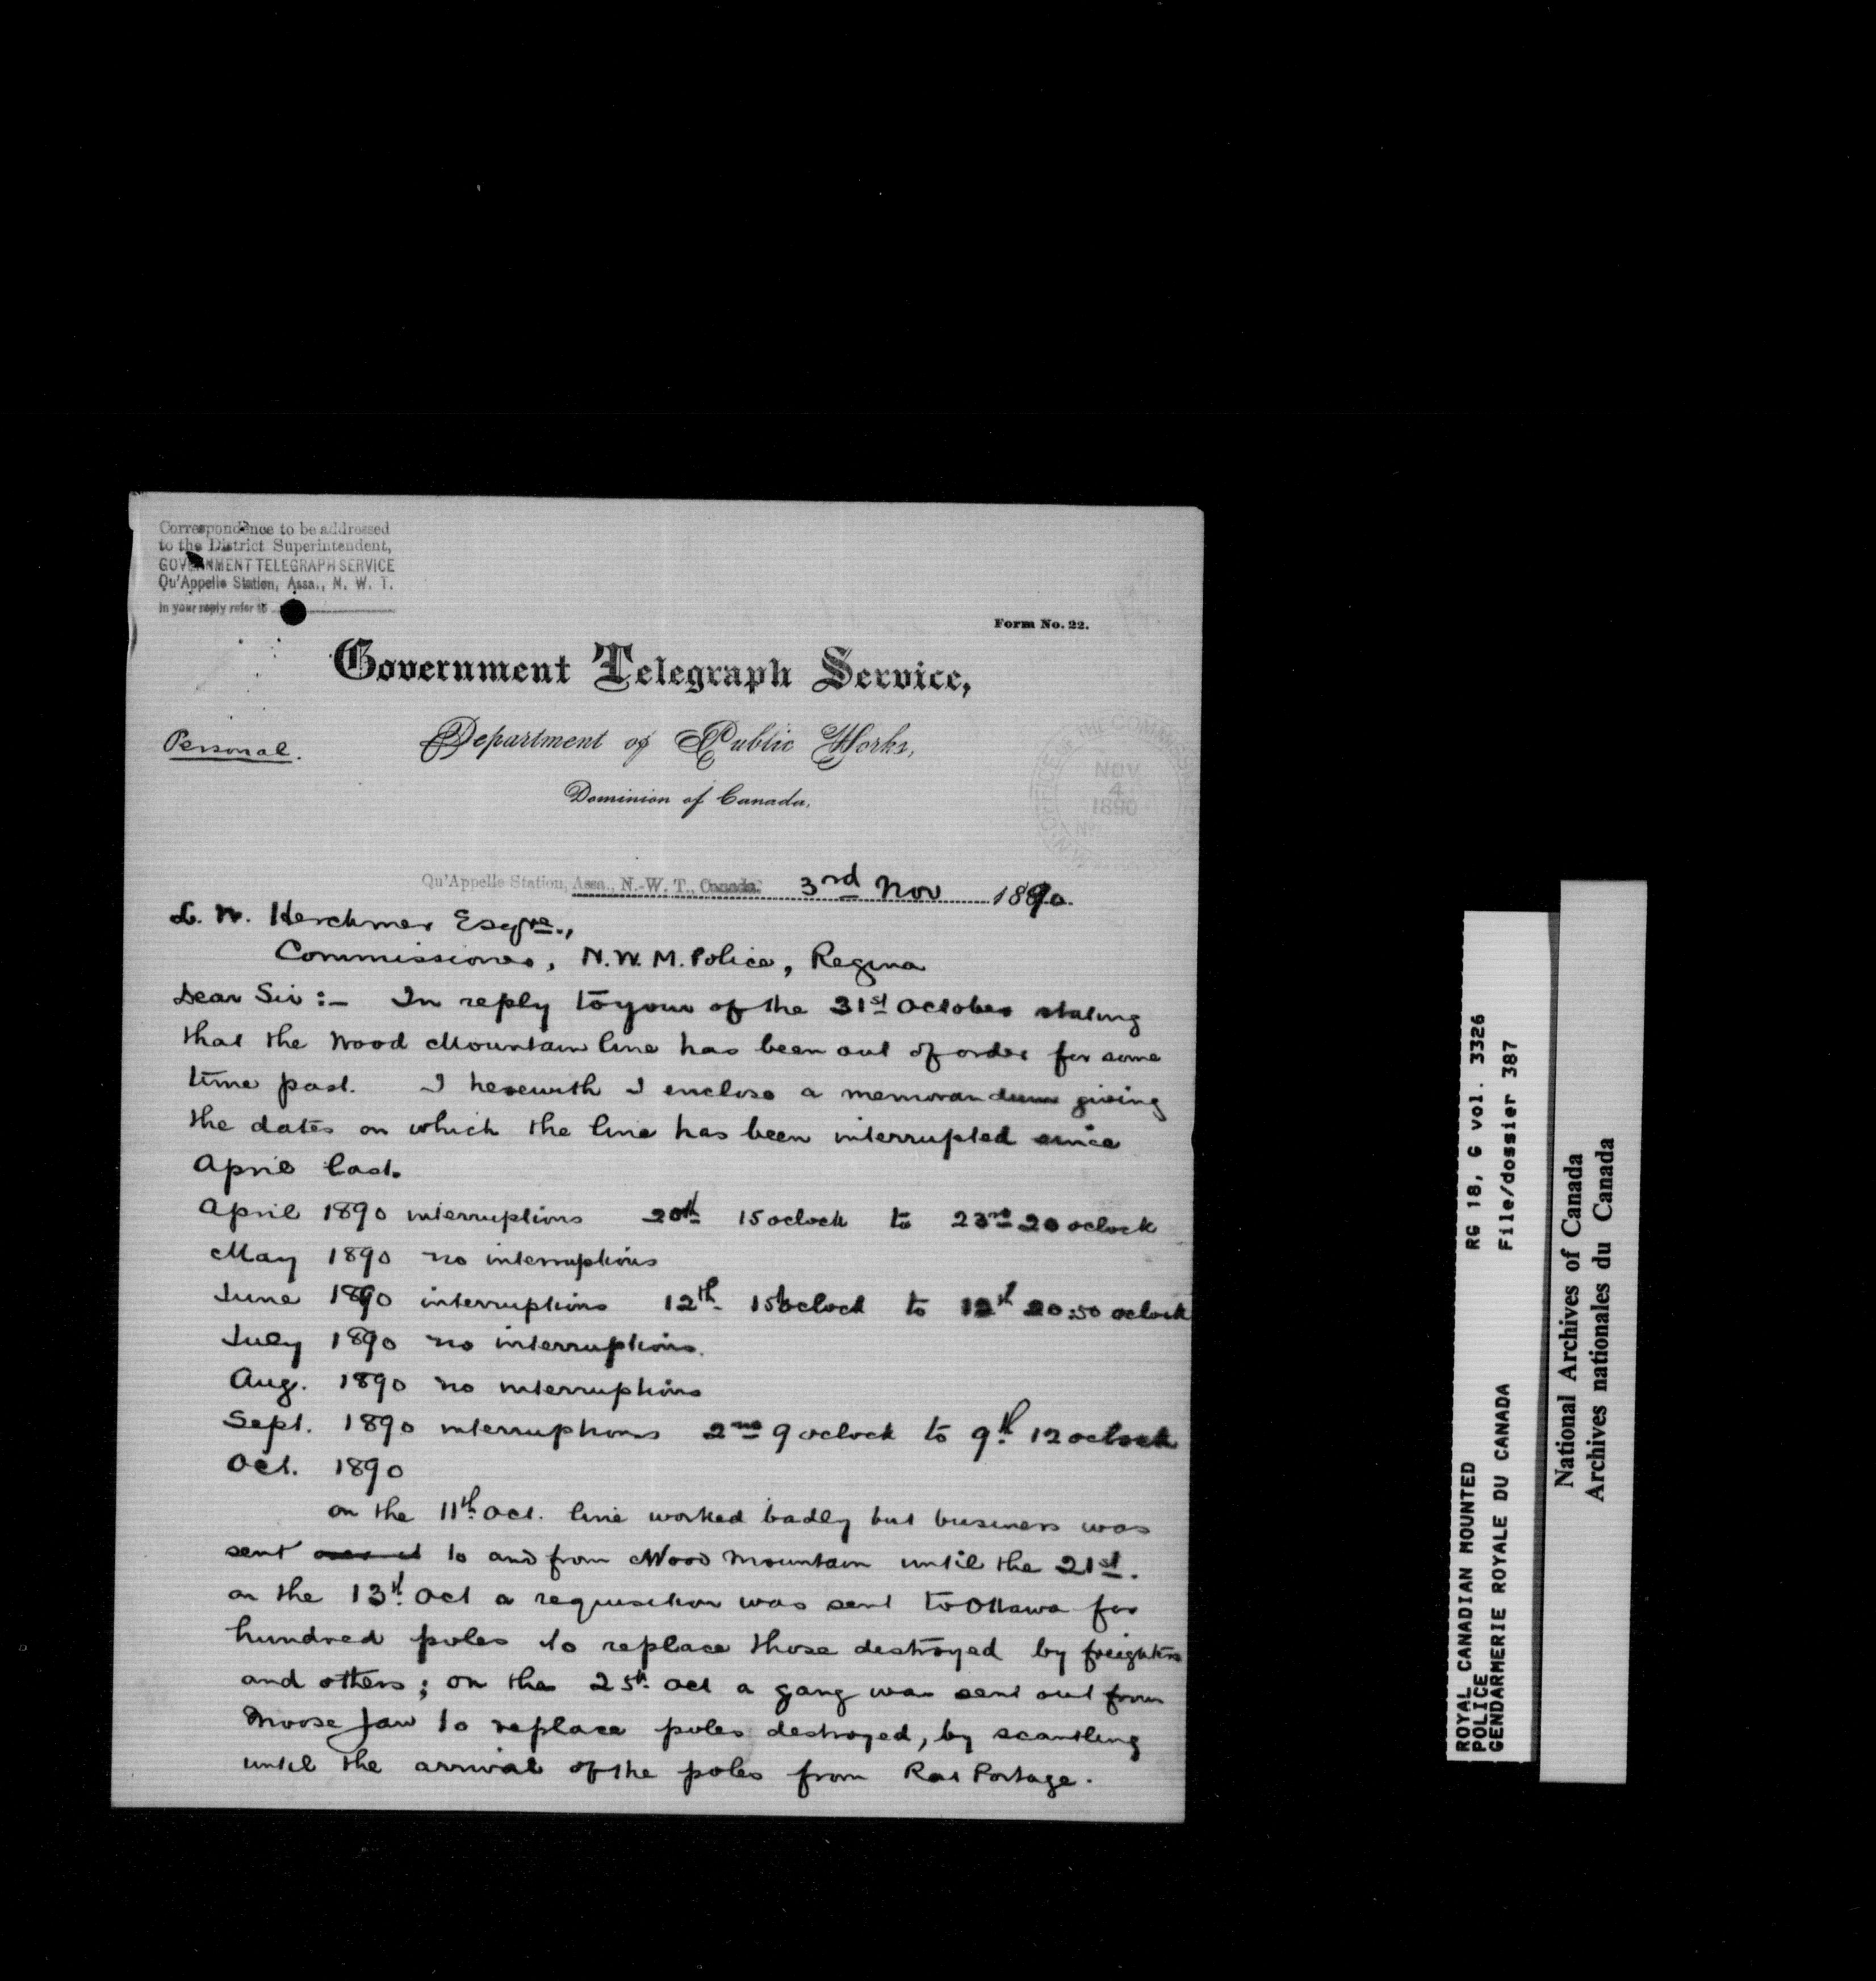 Correspondence to be addressed
to the District Superintendent,
GOVERNMENT TELEGRAPH SERVICE
Qu'Appelle Station, Assa., N. W. T.
In your reply refer to
Form No. 22.
Government Telegraph Service,
Personal.
Department of Public Works,
Dominion of Canada,
OFFICE OF THE COMMISSIONER
NOV
4
1890
No
Qu'Appelle Station, Assa., N.-W. T., Canada. 3rd Nov 1890.
L. W. Herchmer Esqre.,
Commissioner, N.W.M. Police, Regina
Dear Sir :- In reply to your of the 31st October stating
that the Wood Mountain line has been out of order for some
time past. I herewith I enclose a memorandum giving
the dates on which the line has been interrupted since
April last.
April 1890 interruptions 20th 15 oclock to 23rd 20 oclock
May 1890 no interruptions
June 1890 interruptions 12th 15 oclock to 12th 20:50 oclock
July 1890 no interruptions.
Aug. 1890 no interruptions
Sept. 1890 interruptions 2nd 9 oclock to 9th 12 oclock
Oct. 1890
on the 11th Oct. line worked badly but business was
sent to and from Wood Mountain until the 21st.
on the 13th Oct a requisition was sent to Ottawa for
hundred poles to replace those destroyed by freighters
and others; on the 25th Oct a gang was sent out from
Moose Jaw to replace poles destroyed, by scantling
until the arrival of the poles from Rat Portage.
ROYAL CANADIAN MOUNTED
POLICE
GENDARMERIE ROYALE DU CANADA
RG 18, G vol. 3326
File/dossier 387
National Archives of Canada
Archives nationales du Canada